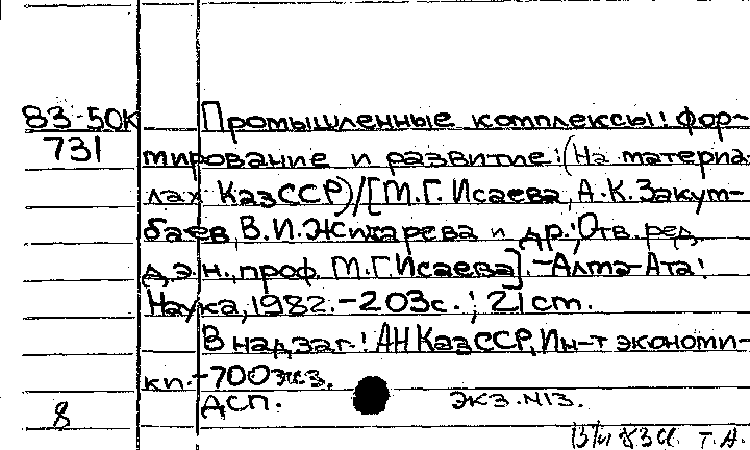 83-50К Промышленные комплексы: фор-
731 мирование и развитие: (На материа-
лах КазССР)/[М.Г. Исаева, А.К. Закум-
баев, В.И. Жихарева и др.; Отв. ред.
д.э.н., проф. М.Г. Исаева]. - Алма-Ата:
Наука, 1982. - 203с.; 21 см.
В надзаг.: АН КазССР, Ин-т экономи-
ки. - 700 экз.
8 ДСП. ЭКЗ. №13.
Т.А.